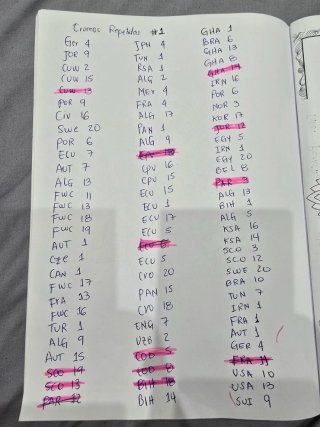 Cromos Repetidos #1
Ger 4
JOR 9
CUW 2
CUW 15
CUW 13
POR 9
CIV 16
SWE 20
POR 6
ECU 7
AUT 7
ALG 13
FWC 11
FWC 13
FWC 18
FWC 19
AUT 1
CZE 1
CAN 1
FWC 17
FRA 13
FWC 16
TUR 1
ALG 9
AUT 15
SCO 19
SCO 13
PAR 12
JPN 4
TUN 1
RSA 1
ALG 2
MEX 4
FRA 4
ALG 17
PAN 1
ALG 9
CPV 16
CPV 15
ECU 15
ECU 1
ECU 17
ECU 5
ECU 8
ECU 5
CRO 20
PAN 15
CRO 18
ENG 7
UZB 2
COD 5
COD 8
BIH 18
BIH 14
GHA 1
BRA 6
GHA 13
GHA 8
GHA 14
IRN 16
POR 6
NOR 3
KOR 17
JOR 12
EGY 5
IRN 1
EGY 20
BEL 8
PAR 3
ALG 13
BIH 1
ALG 5
KSA 16
KSA 14
SCO 3
SCO 12
SWE 20
BRA 10
TUN 7
IRN 1
FRA 1
AUT 1
GER 4
FRA 11
USA 10
USA 13
SUI 9